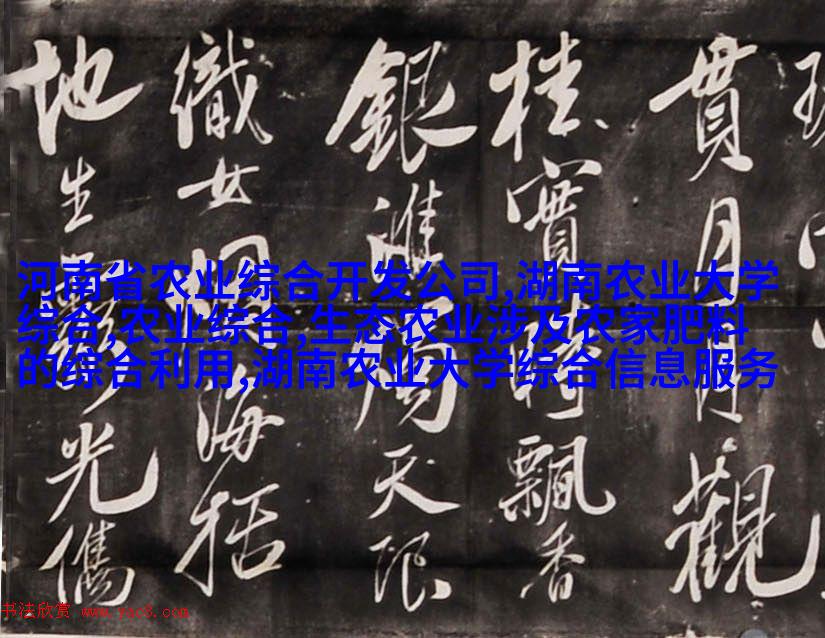 貫月月觀
桂實時飄香
銀淮天限
織女海括
地生光儁
河南省农业综合开发公司,湖南农业大学
综合,农业综合,生态农业涉及农家肥料
的综合利用,湖南农业大学综合信息服务
书法欣赏 www.yac8.com